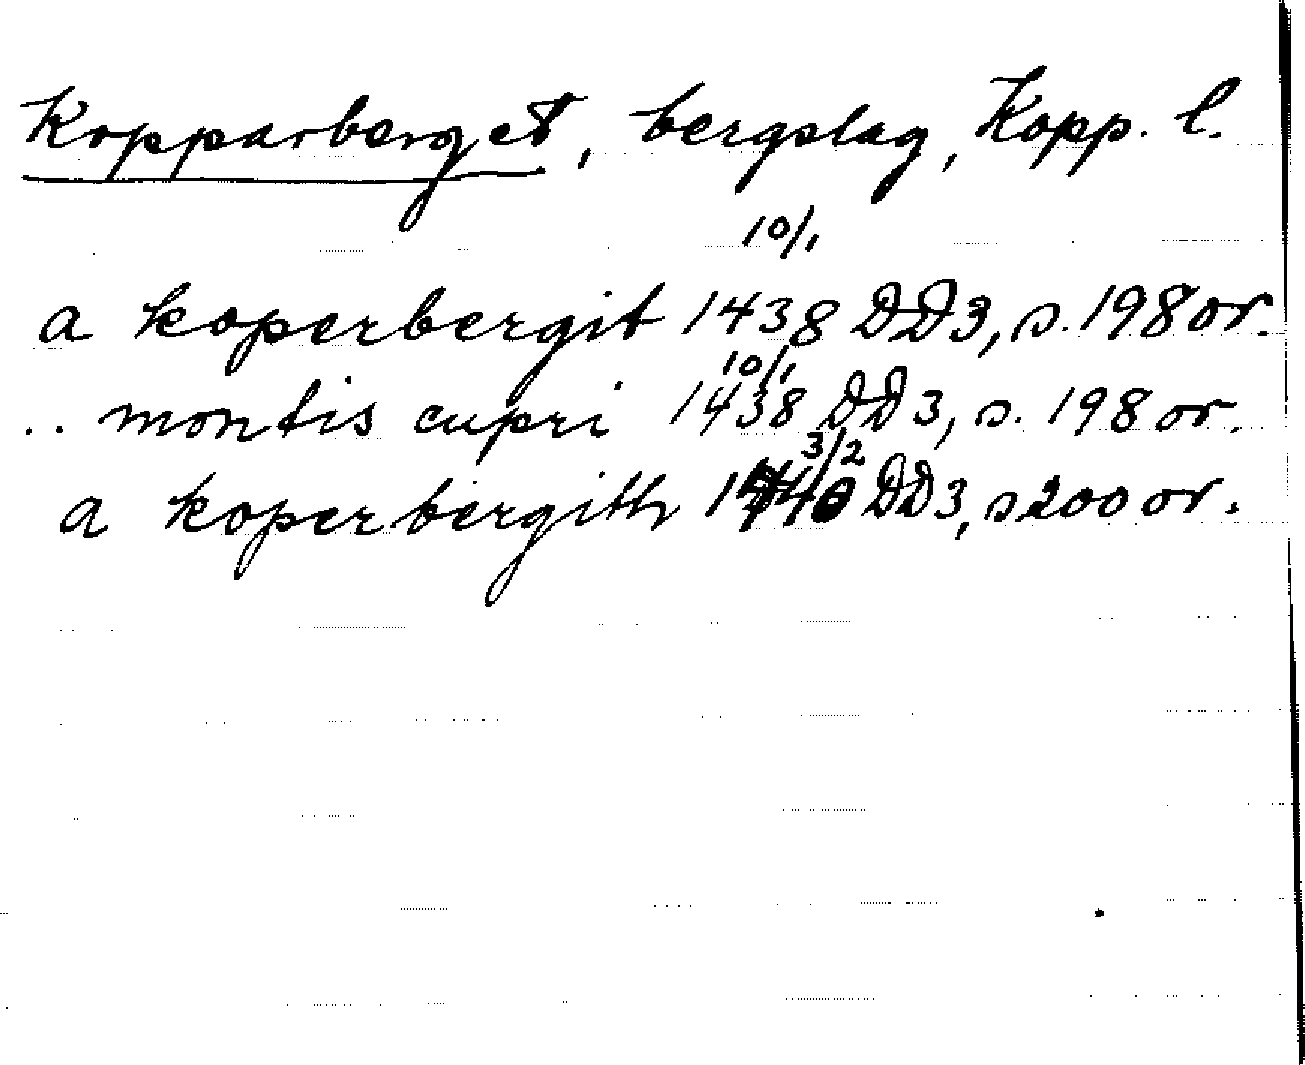 Kopparberget, bergslag, Kopp. l.
10/1
a koperbergit 1438 DD3, s. 198 or.
10/1
.. montis cupri 1438 DD3, s. 198 or.
3/2
a koperbergith 1440 DD3, s 200 or.